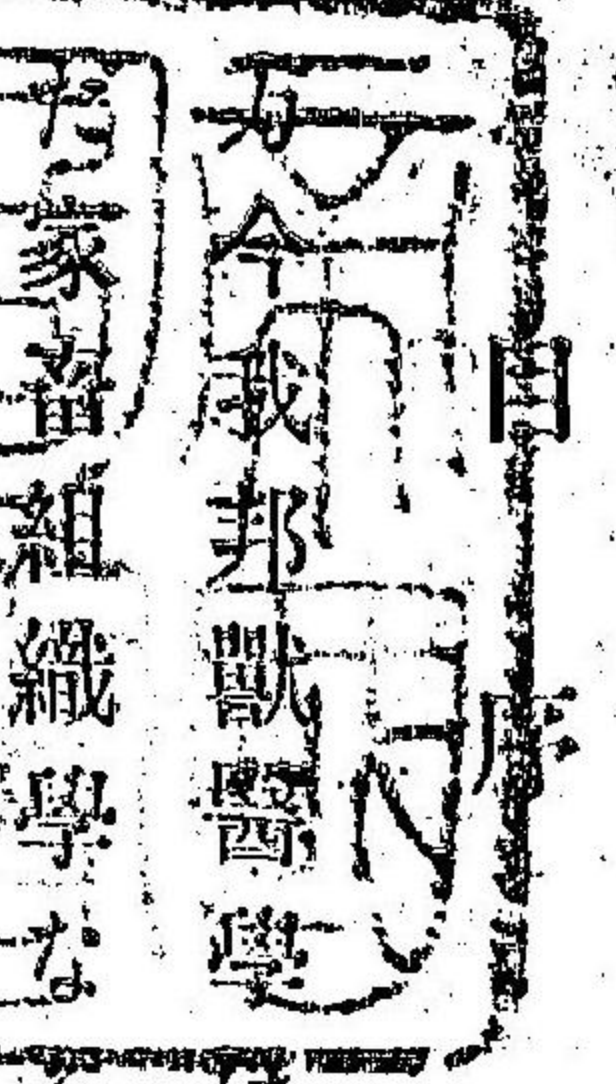 自序
方今我邦獸醫學
だ家畜組織學な